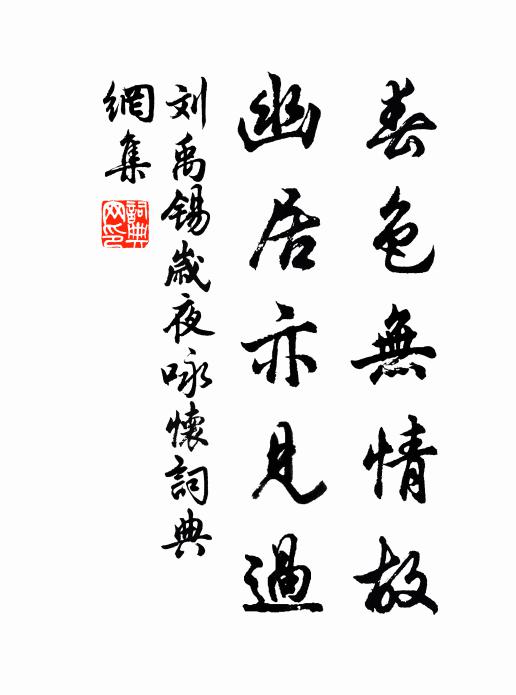 春色無情故
幽居亦見過
刘禹锡歲夜咏懷詞典
網集
詞典
网印